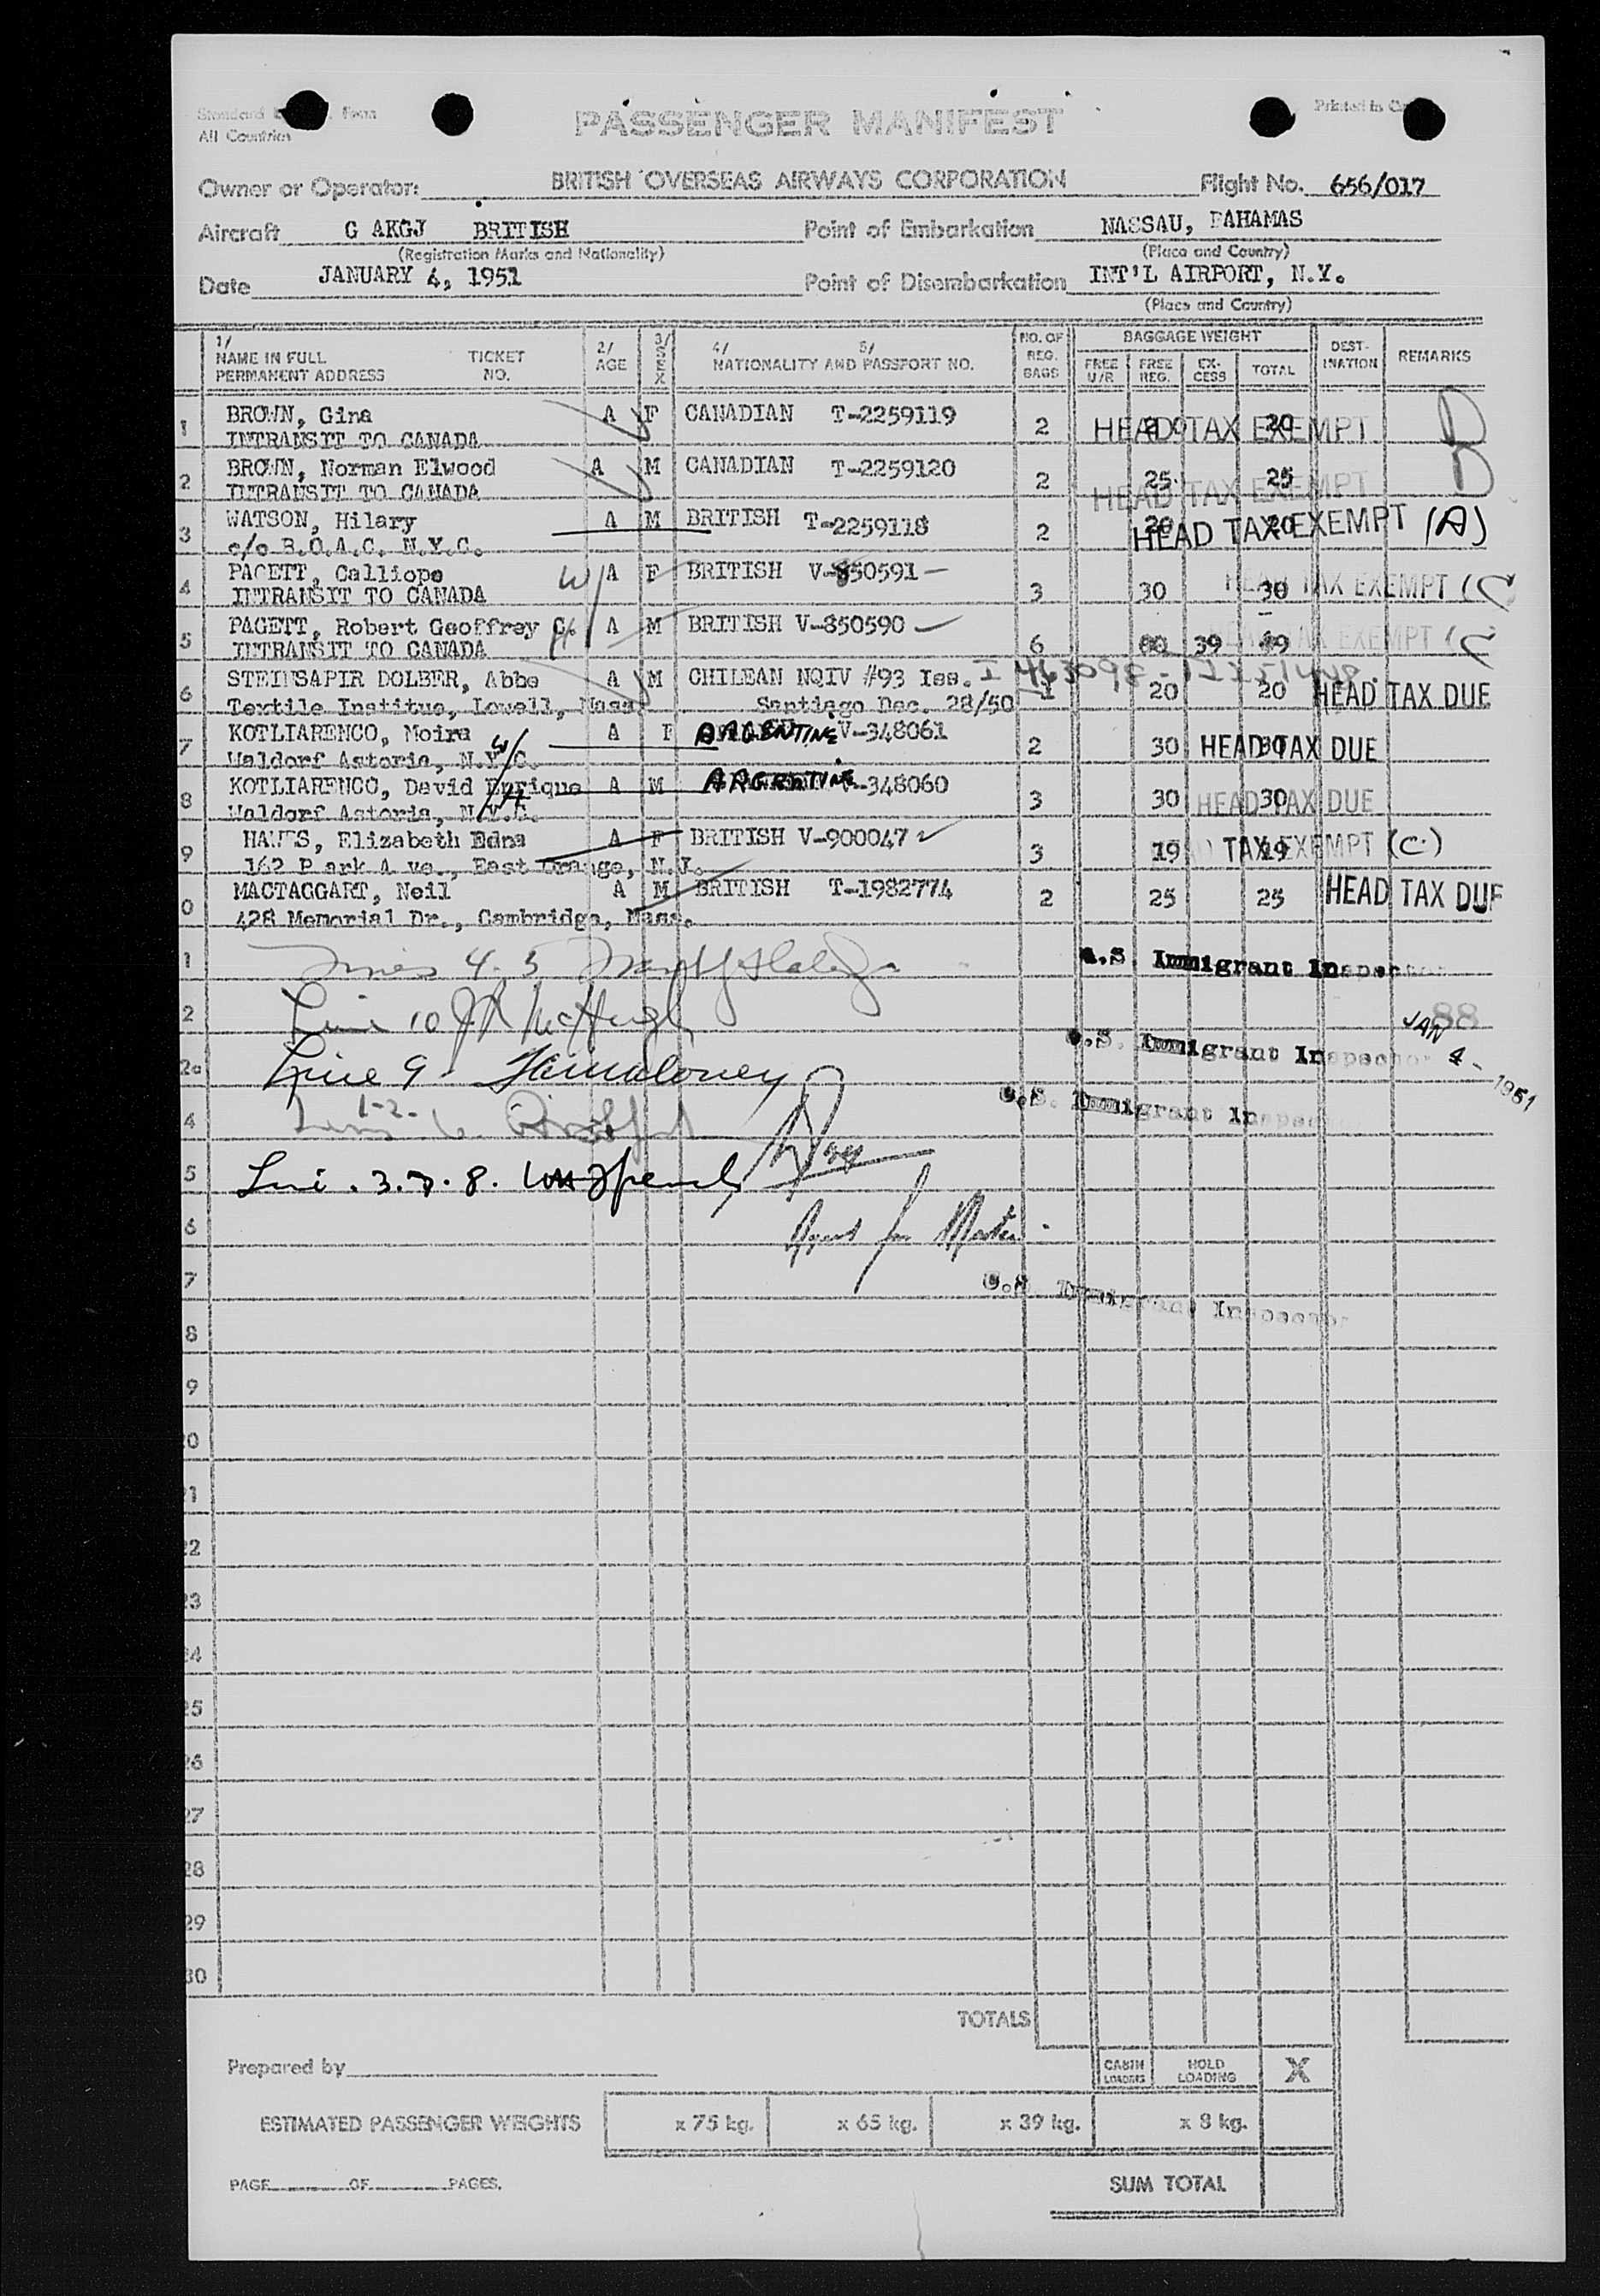 Standard Form
All Countries
Printed in
PASSENGER MANIFEST
Owner or Operator: BRITISH OVERSEAS AIRWAYS CORPORATION Flight No. 656/017
Aircraft G AKGJ BRITISH Point of Embarkation NASSAU, BAHAMAS
(Registration Marks and Nationality) (Place and Country)
Date JANUARY 4, 1951 Point of Disembarkation INT'L AIRPORT, N.Y.
(Place and Country)
1/ NAME IN FULL PERMANENT ADDRESS TICKET NO. 2/ AGE 3/ SEX 4/ 5/ NATIONALITY AND PASSPORT NO. NO. OF REG. BAGS BAGGAGE WEIGHT FREE U/R FREE REG. EX-CESS TOTAL DEST-INATION REMARKS
1 BROWN, Gina A F CANADIAN T-2259119 2 20 HEAD TAX EXEMPT D
INTRANSIT TO CANADA
2 BROWN, Norman Elwood A M CANADIAN T-2259120 2 25 25 HEAD TAX EXEMPT D
INTRANSIT TO CANADA
3 WATSON, Hilary A M BRITISH T-2259118 2 20 20 HEAD TAX EXEMPT (A)
c/o B.O.A.C. N.Y.C.
4 PAGETT, Calliope W/ A F BRITISH V-850591 3 30 30 HEAD TAX EXEMPT (C
INTRANSIT TO CANADA
5 PAGETT, Robert Geoffrey C. H A M BRITISH V-850590 6 39 HEAD TAX EXEMPT (C
INTRANSIT TO CANADA
6 STEINSAPIR DOLBER, Abbe A M CHILEAN NQIV #93 Iss. 1 20 20 HEAD TAX DUE
Textile Institue, Lowell, Mass. Santiago Dec. 28/50
7 KOTLIARENCO, Moira A F ARGENTINE V-348061 2 30 30 HEAD TAX DUE
Waldorf Astoria, N.Y.C. W/
8 KOTLIARENCO, David Enrique A M ARGENTINE V-348060 3 30 30 HEAD TAX DUE
Waldorf Astoria, N.Y.C. H
9 HAWES, Elizabeth Edna A F BRITISH V-900047 3 19 19 TAX EXEMPT (C.)
162 Park Ave., East Orange, N.J.
0 MACTAGGART, Neil A M BRITISH T-1982774 2 25 25 HEAD TAX DUE
428 Memorial Dr., Cambridge, Mass.
1 Lines 4.5 U.S. Immigrant Inspector
2 Line 10 J R McHugh 88
JAN 4 - 1951
U.S. Immigrant Inspector
Line 9
U.S. Immigrant Inspector
4 1-2. 6
5 3.7.8.
6 Agent for Master
7 U.S. Immigrant Inspector
8
9
20
21
22
23
24
25
26
27
28
29
30
TOTALS
Prepared by CABIN LOADING HOLD LOADING X
ESTIMATED PASSENGER WEIGHTS x 75 kg. x 65 kg. x 39 kg. x 8 kg.
PAGE OF PAGES. SUM TOTAL